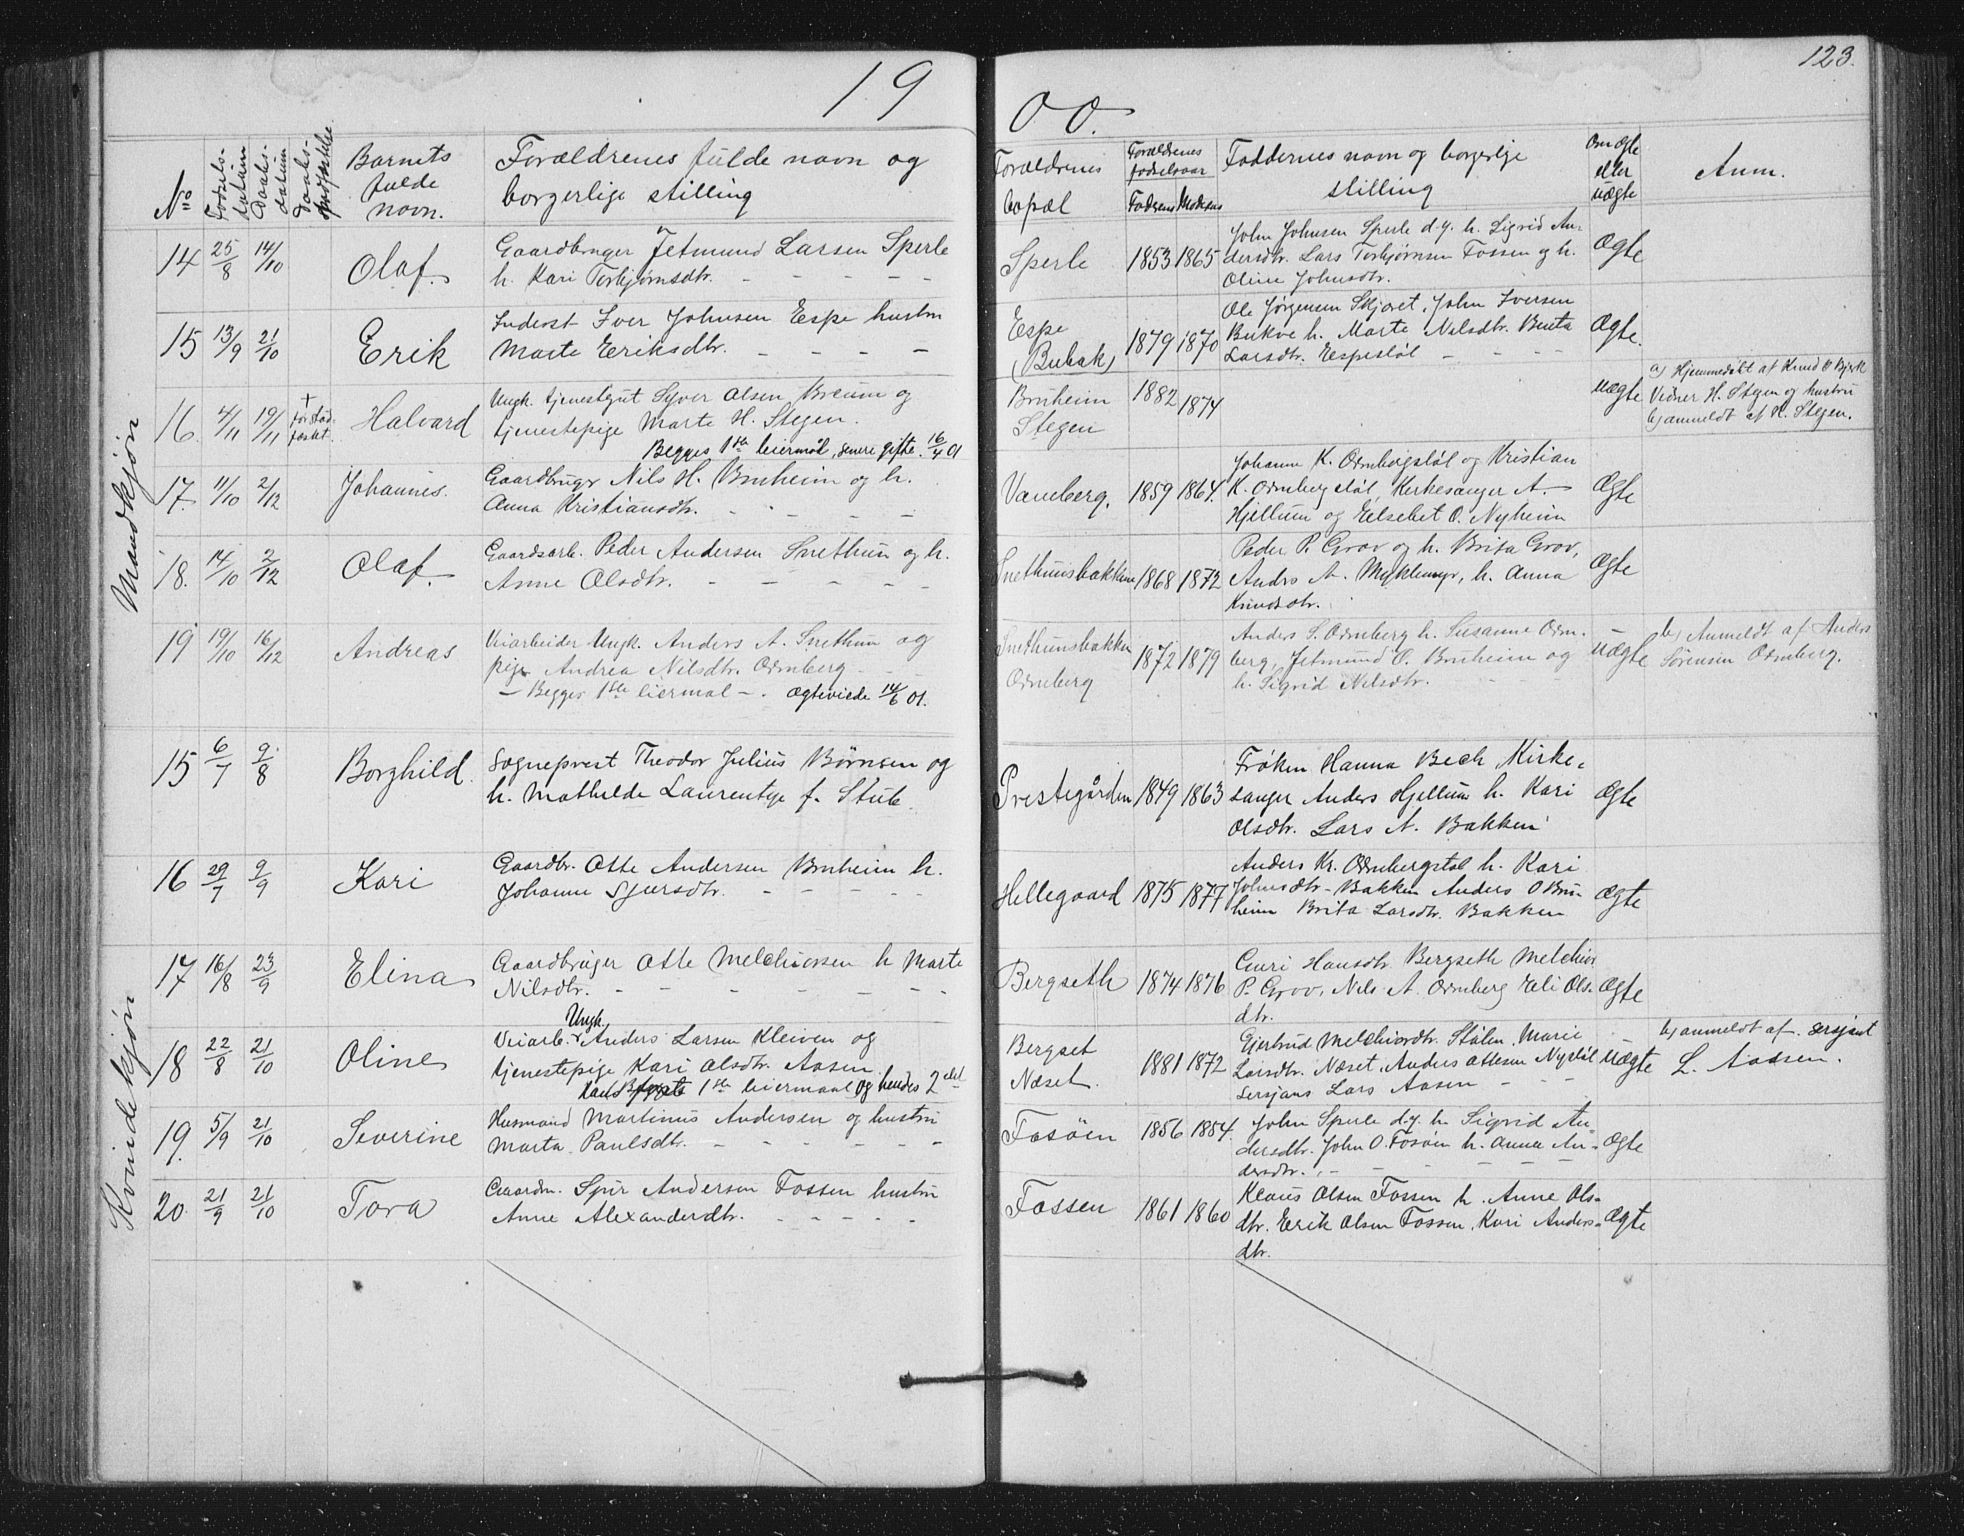 19
00.
123.
No
Fødsels-
datum
Daabs-
datum
Daabs-
Barnets
fulde
navn.
Forældrenes fulde navn og
borgerlige stilling
Forældrenes
bopæl
Forældrenes
fødselsaar
Faderens
Moderens
Faddernes navn og borgerlige
stilling
Om ægte
eller
uægte
Anm.
Mandkjøn
14 25/8 14/10 Olaf.
Gaardbruger Jetmund Larsen Sperle
h. Kari Torbjørnsdtr. - - - -
Sperle 1853 1865
John Johnsen Sperle d.y. h. Sigrid An-
dersdtr. Lars Torbjørnsen Fossen og h.
Oline Johnsdtr.
Ægte
15 13/9 21/10 Erik
Inderst Iver Johnsen Espe hustru
Marte Eriksdtr. - - - -
Espe
(Bubak)
1879 1870
Ole Jørgensen Skjøret, John Iversen
Bukve h. Marte Nilsdtr. Benta
Larsdtr. Eespestøl - - - -
Ægte.
16. 4/11 19/11 + Halvard
Ungk. tjenestegut Syver Olsen Breum og
tjenestepige Marte H. Stegen.
Begges 1ste leiermål, senere gifte 16/4 01
Bruheim
Stegen
1882 1874
uægte
a) Hjemmedøbt af Knud O Bjerk
Vidner H. Stegen og hustru
b) anmeldt af H. Stegen.
17. 11/10 2/12 Johannes.
Gaardbrugr Nils H. Bruheim og h.
Anna Kristiansdtr. - - - -
Vamberg. 1859 1864.
Johanne K. Ørnbergstøl og Kristian
K. Ørnbergstøl, Kirkesanger A.
Hjellum og Eelsebet O. Nyheim
Ægte
18. 14/10 2/12 Olaf.
Gaardsarb. Peder Andersen Snethun og h.
Anne Olsdtr. - - - -
Snethunsbakken 1868 1872
Peder P. Grov og h. Brita Grov,
Andrs A. Myklemyr, h. Anna
Knudsdtr.
Ægte
19 19/10 16/12 Andreas
Veiarbeider Ungk. Anders A. Snethun og
pige Andrea Nilsdtr. Ørnberg - -
- Begges 1ste leiermal -. ægteviede 14/6 01.
Snethunsbakken
Ørneberg
1872 1879
Anders S. Ørnberg h. Susanne Ørn-
berg, Jetmund O. Bruheim og
h. Sigrid Nilsdtr.
uægte
b) Anmeldt af Anders
Sørensen Ørnberg.
Kvindekjøn
15 6/7 9/8 Borghild.
Sogneprest Theodor Julius Børnsen og
h. Mathilde Laurentze f. Stub.
Prestegården 1849 1863
Frøken Hanna Bech, Kirke-
sanger Anders Hjellum h. Kari
Olsdtr. Lars A. Bakken
Ægte
16 29/7 9/9 Kari
Gaardbr. Otte Andersen Bruheim h.
Johanne Sjursdtr. - - - -
Hellegaard 1875 1877
Anders Kr. Ørnbergstøl h. Kari
Johnsdtr - Bakken Anders O Bru-
heim Brita Larsdtr. Bakken
Ægte
17 16/8 23/9 Elina
Gaardbruger Otte Melchiorsen h Marte
Nilsdtr. - - - -
Bergseth 1874 1876
Guri Hansdtr Bergseth Melchior
P. Grov, Nils A. Ørnberg Eli Ols-
dtr.
Ægte
18 22/8 21/10 Oline
Ungk.
Veiarb. Anders Larsen Kleiven og
tjenestepige Kari Olsdtr. Aasen
hans 1ste leiermaal og hendes 2det
Bergset
Næset.
1881 1872
Gjertrud Melchiordtr. Stølen, Marie
Larsdtr. Næset, Anders Ottesen Nystøl
Sersjans Lars Aasen - - -
uægte
b) anmeldt af sersjant
L. Aassen.
19. 5/9 21/10 Severine
Husmand Martinus Andersen og hustru
Marta Paulsdtr. - - - -
Fosöen 1856 1854.
John Sperle d.y. h. Sigrid An-
dersdtr. John O. Fosöen h. Anna An-
dersdtr. - - - -
Ægte
20 21/9 21/10 Tora
Gaardm. Spür Andersen Fossen hustru
Anne Alexanderdtr. - - - -
Fossen 1861 1860
Klaus Olsen Fossen h. Anne Ols-
dtr. Erik Olsen Fossen, Kari Anders-
dtr.
Ægte